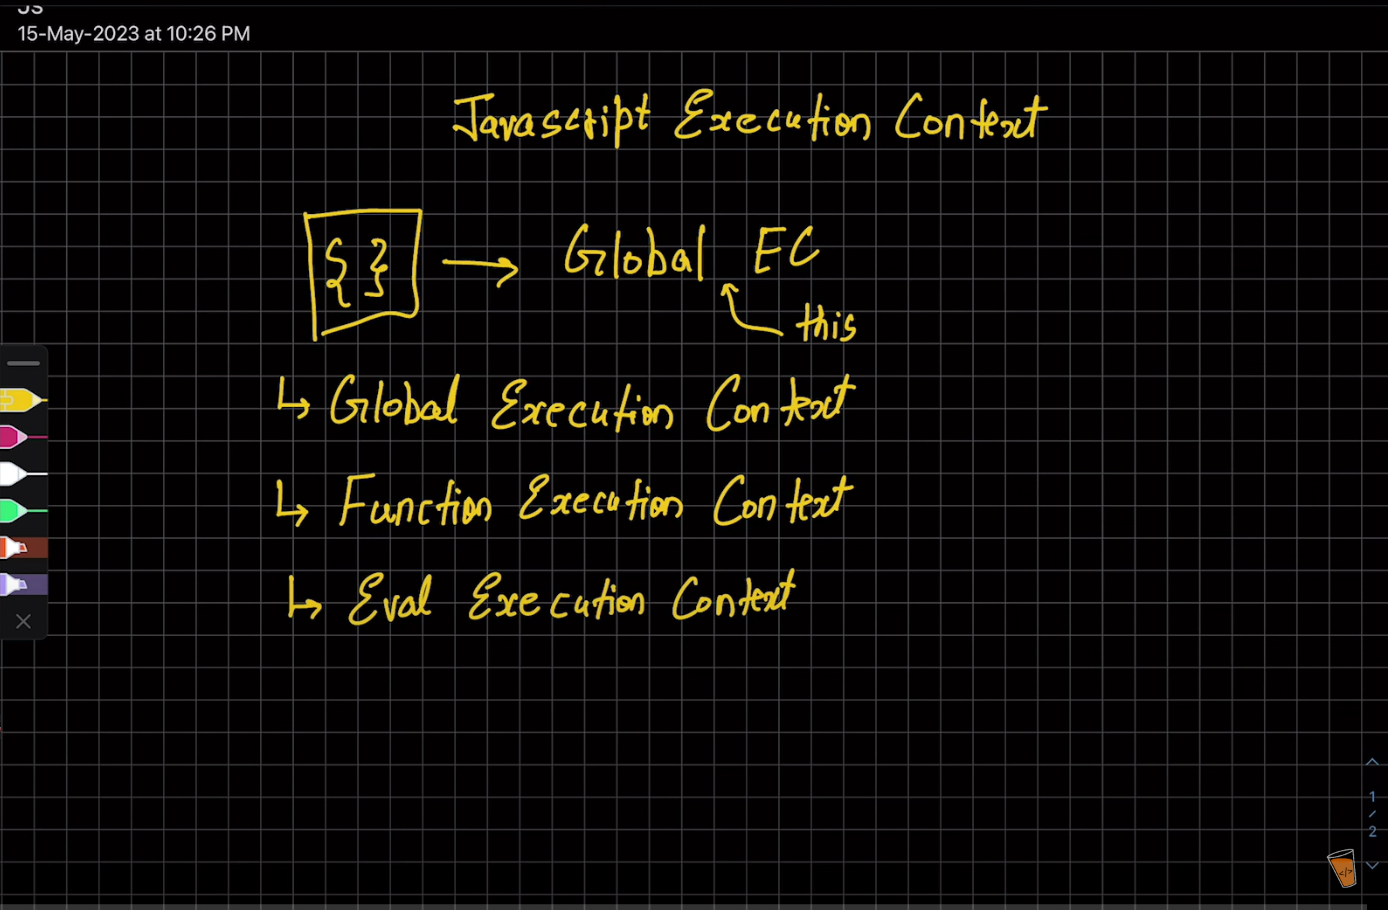 JS
15-May-2023 at 10:26 PM
Javascript Execution Context
{ } → Global EC
this
↳ Global Execution Context
↳ Function Execution Context
↳ Eval Execution Context
1
/
2
</>